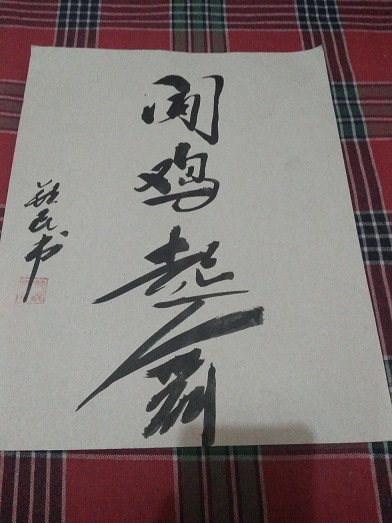 闻鸡起舞
民书